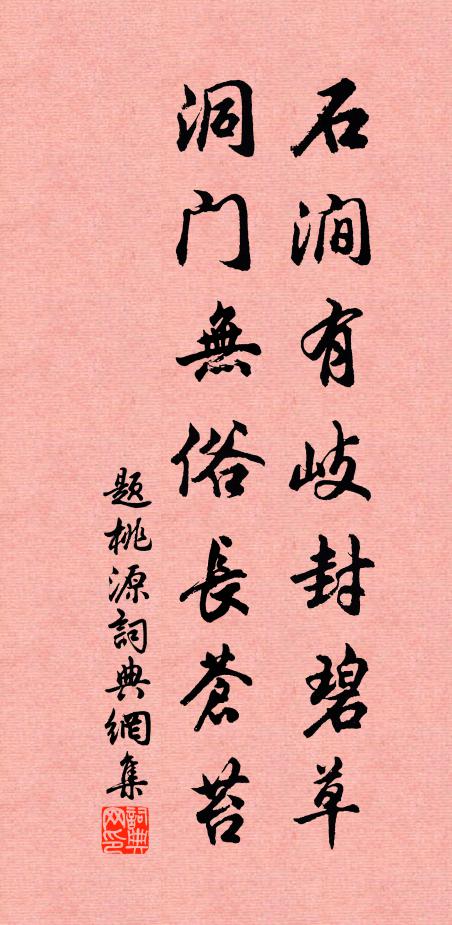 石涧有岐封碧草
洞门無俗長蒼苔
题桃源詞典網集
詞典网印